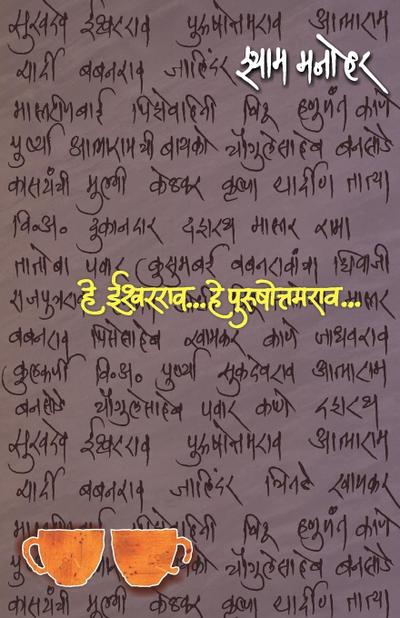 सुखदेव ईश्वरराव पुरुषोत्तमराव आत्माराम
यादी बबनराव जालिंदर
श्याम मनोहर
मास्तरीणबाई विठू हणुमंत काणे
पुष्पी आत्मारामची बायको चौगुलेसाहेब बनसोडे
मुलगी केळकर कृष्णा यादीण तात्या
वि.अ. दुकानदार दशरथ मास्तर रामा
तातोबा पवार कुसुमबाई शिवाजी
हे ईश्वरराव... हे पुरुषोत्तमराव...
मास्तर
बबनराव पिसेसाहेब खामकर काणे जाधवराव
कुलकर्णी वि.अ. पुष्पी सुकदेवराव आत्माराम
बनसोडे चौगुलेसाहेब पवार काणे दशरथ
सुखदेव ईश्वरराव पुरुषोत्तमराव आत्माराम
यादी बबनराव जालिंदर खामकर
विठू हणुमंत काणे
चौगुलेसाहेब बनसोडे
मुलगी केळकर कृष्णा यादीण तात्या